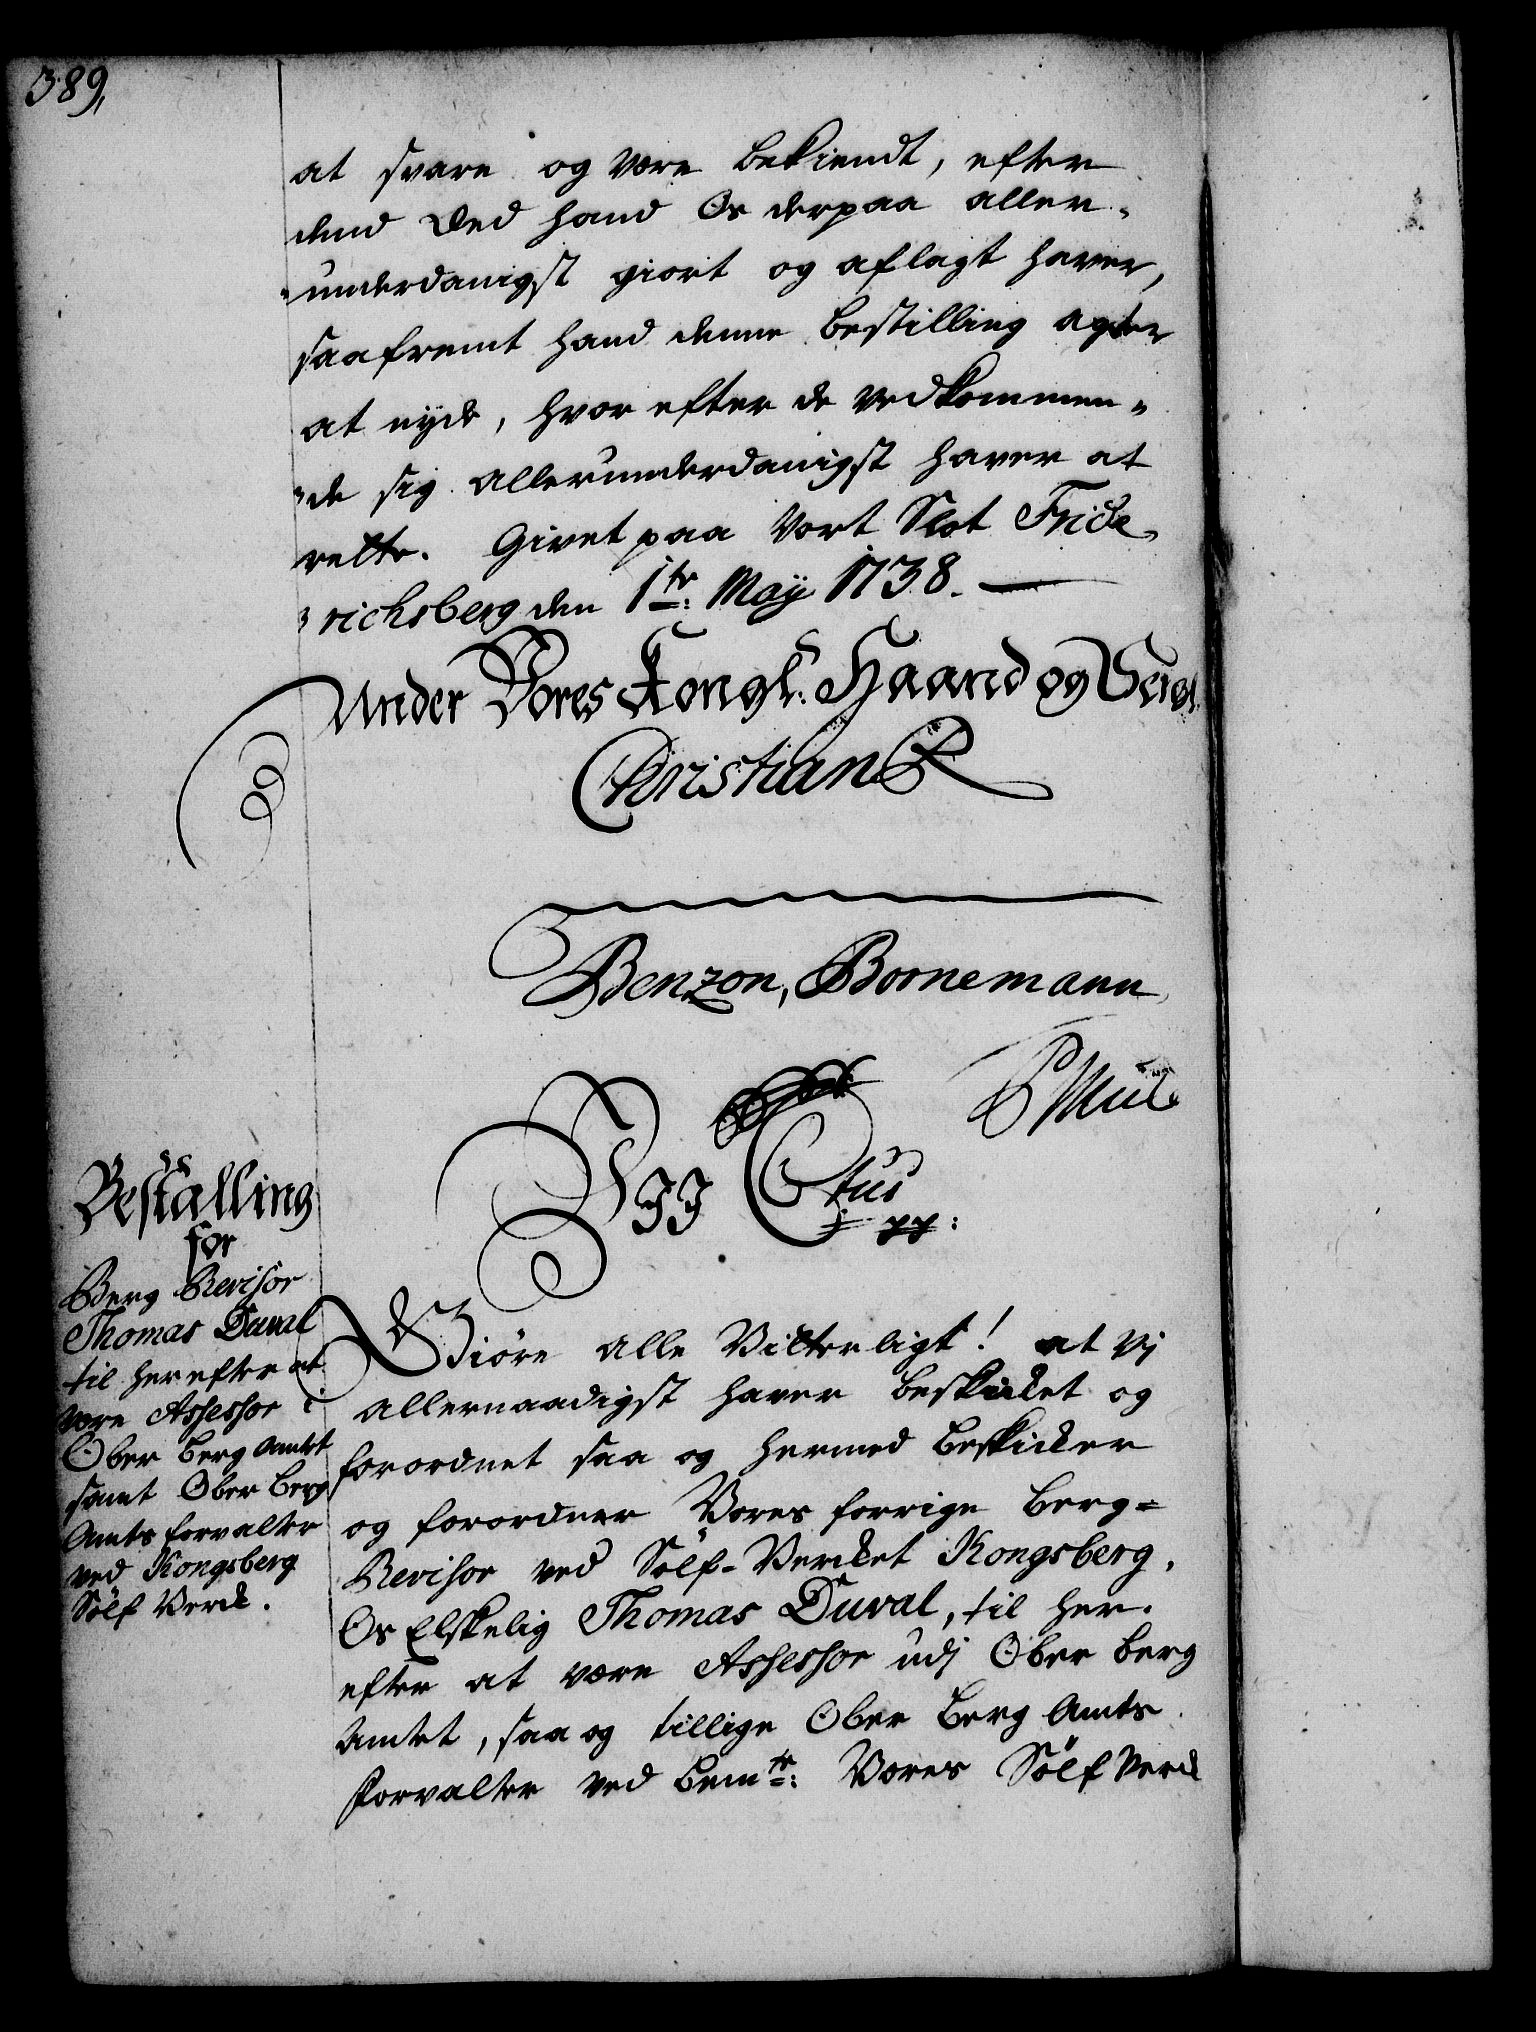 389,
at svare og være bekiendt, efter
dend Eed hand Os derpaa aller-
-underdanigst giort og aflagt haver,
saafremt hand denne bestilling agter
at nyde, hvor efter de vedkommen-
-de sig allerunderdanigst haver at
rette. Givet paa Vort Slot Fride-
-richsberg den 1te: May 1738. —
Under Vores Kongl: Haand og Seigl
Christian R
Benzon, Bornemann
Vij C 6tus
pp:
Bestalling
for
Berg Revisor
Thomas Duval
til herefter at
være Assessor i
Ober Berg Amtet
samt Ober Berg
Amts forvalter
ved Kongsberg
Sölf Verck.
Giöre alle Vitterligt! at Vj
allernaadigst haver beskicket og
forordnet saa og hermed beskicker
og forordner Vores forrige Berg=
Revisor ved Sölf-Vercket Kongsberg,
Os Elskelig Thomas Duval, til her-
efter at være Assessor udj Ober berg
Amtet, saa og tillige Ober Berg Amts
Forvalter ved bemte: Vores Sölf Verck